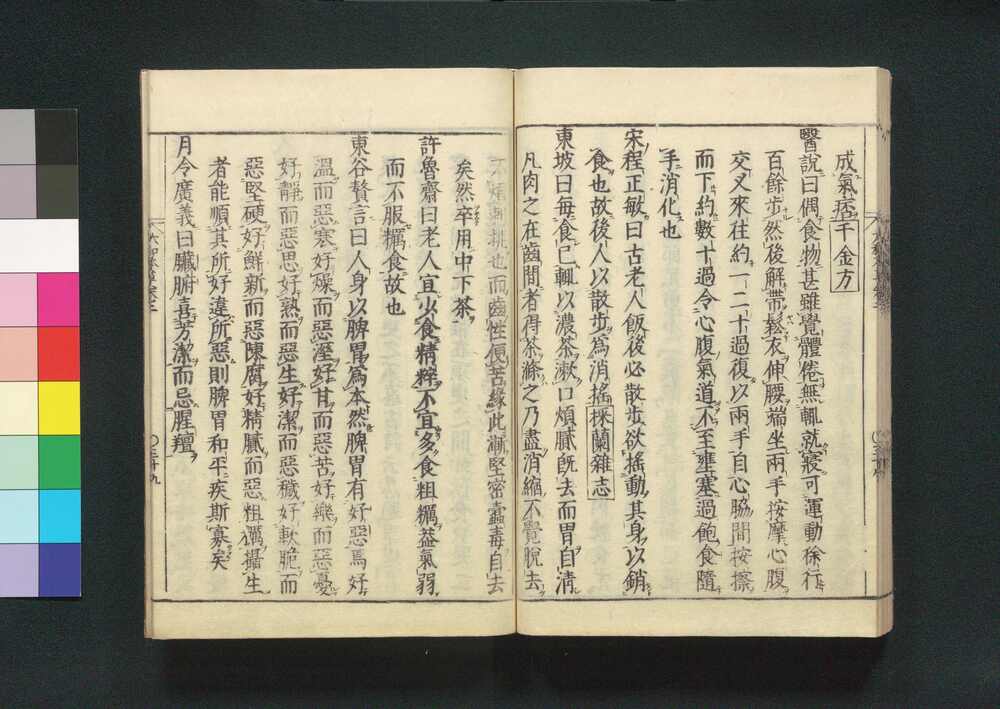 成氣痞千金方
醫說曰偶食物甚雖覺體倦無輒就寢可運動徐行
百餘步然後解帶鬆衣伸腰端坐兩手按摩心腹
交叉來往約一二十過復以兩手自心脇間按擦
而下約數十過令心腹氣道不至壅塞過飽食隨
手消化也
宋程正敏曰古老人飯後必散步欲搖動其身以銷
食也故後人以散步為消搖採蘭雜志
東坡曰每食已輒以濃茶漱口煩膩旣去而胃自淸
凡肉之在齒間者得茶滌之乃盡消縮不覺脫去
不煩刺挑也而齒性便苦緣此漸堅密蠹毒自去
矣然卒用中下茶
許魯齋曰老人宜少食精粹不宜多食粗糲益氣弱
而不服糲食故也
東谷贅言曰人身以脾胃為本然脾胃有好惡焉好
溫而惡寒好燥而惡溼好甘而惡苦好樂而惡憂
好靜而惡思好熟而惡生好潔而惡穢好軟脆而
惡堅硬好鮮新而惡陳腐好精膩而惡粗糲攝生
者能順其所好違所惡則脾胃和平疾斯寡矣
月令廣義曰臟腑喜芳潔而忌腥羶